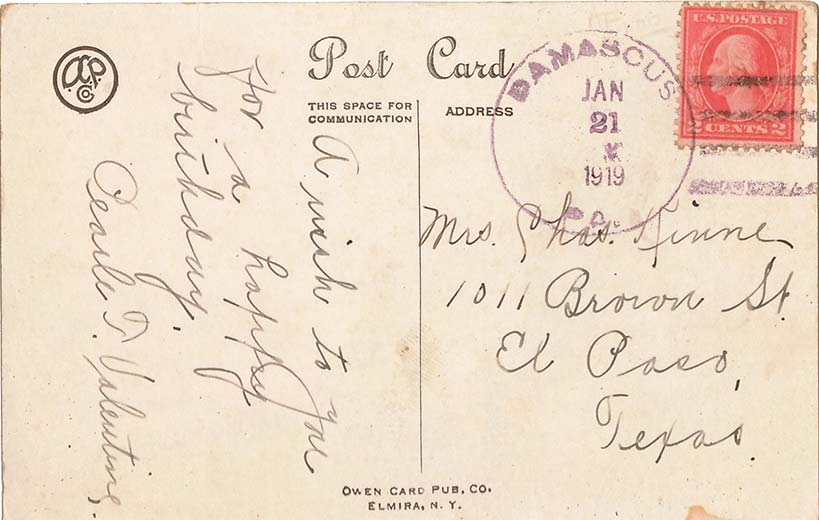 a.p.
Co
Post Card
THIS SPACE FOR
COMMUNICATION
ADDRESS
A wish to you
for a happy
birthday.
Pearle T. Valentine.
DAMASCUS
JAN
21
1919
PA.
U.S. POSTAGE
2 CENTS 2
Mrs. Chas. Kinne
1011 Brown St.
El Paso,
Texas.
OWEN CARD PUB. CO.
ELMIRA, N. Y.